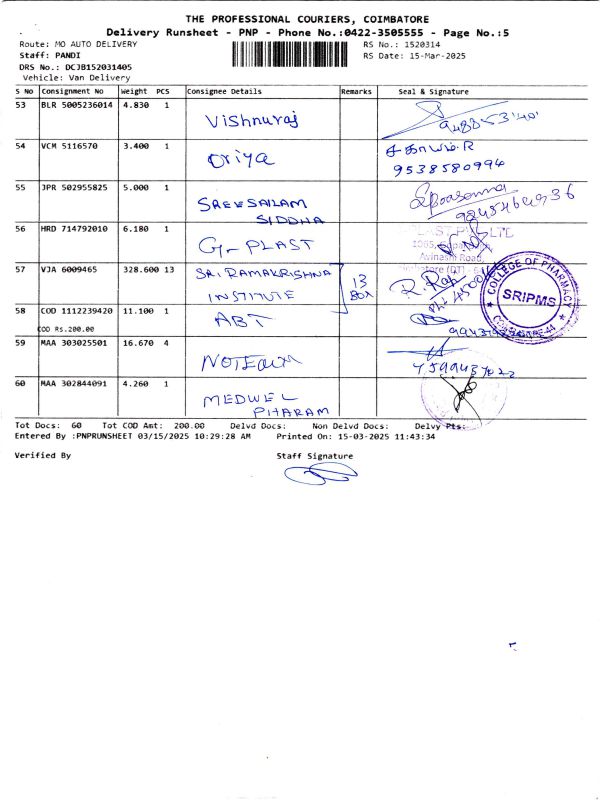 THE PROFESSIONAL COURIERS, COIMBATORE
Delivery Runsheet - PNP - Phone No.:0422-3505555 - Page No.:5
Route: MO AUTO DELIVERY RS No.: 1520314
Staff: PANDI RS Date: 15-Mar-2025
DRS No.: DCJB152031405
Vehicle: Van Delivery
S NO Consignment No Weight PCS Consignee Details Remarks Seal & Signature
53 BLR 5005236014 4.830 1 Vishnuraj
54 VCM 5116570 3.400 1 oriya
9538580994
55 JPR 502955825 5.000 1 SREESAILAM
SIDDHA
56 HRD 714792010 6.180 1 G-PLAST
Avinashi Road,
57 VJA 6009465 328.600 13 SRI RAMAKRISHNA
INSTITUTE
13
BOX
COLLEGE OF PHARMACY
SRIPMS
58 COD 1112239420 11.100 1 ABT
COD Rs.200.00
59 MAA 303025501 16.670 4
60 MAA 302844091 4.260 1 MEDWEL
PHARAM
Tot Docs: 60 Tot COD Amt: 200.00 Delvd Docs: Non Delvd Docs: Delvy Pts:
Entered By :PNPRUNSHEET 03/15/2025 10:29:28 AM Printed On: 15-03-2025 11:43:34
Verified By Staff Signature